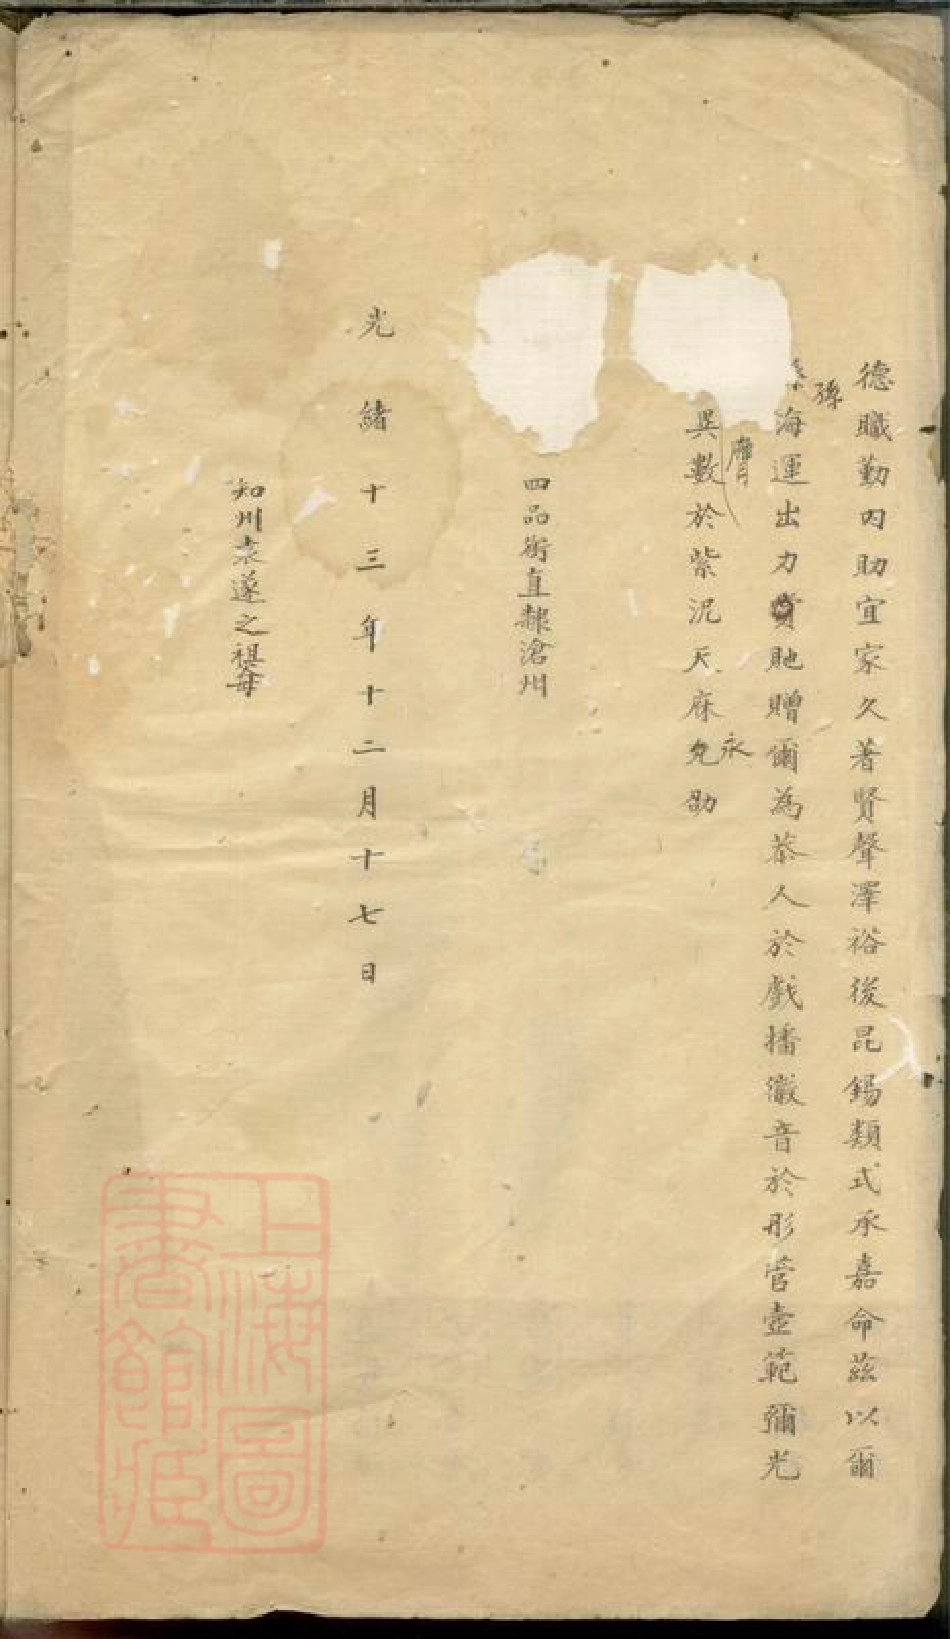 德職勤內助宜家久著賢聲澤裕後昆錫類式承嘉命茲以爾
孫
海運出力貤贈爾為恭人於戲播徽音於彤管壼範彌光
膺
永
異數於紫泥天庥允劭
四品銜直隸滄州
光緒十三年十二月十七日
知州袁遂之祖母
上海圖
書館藏